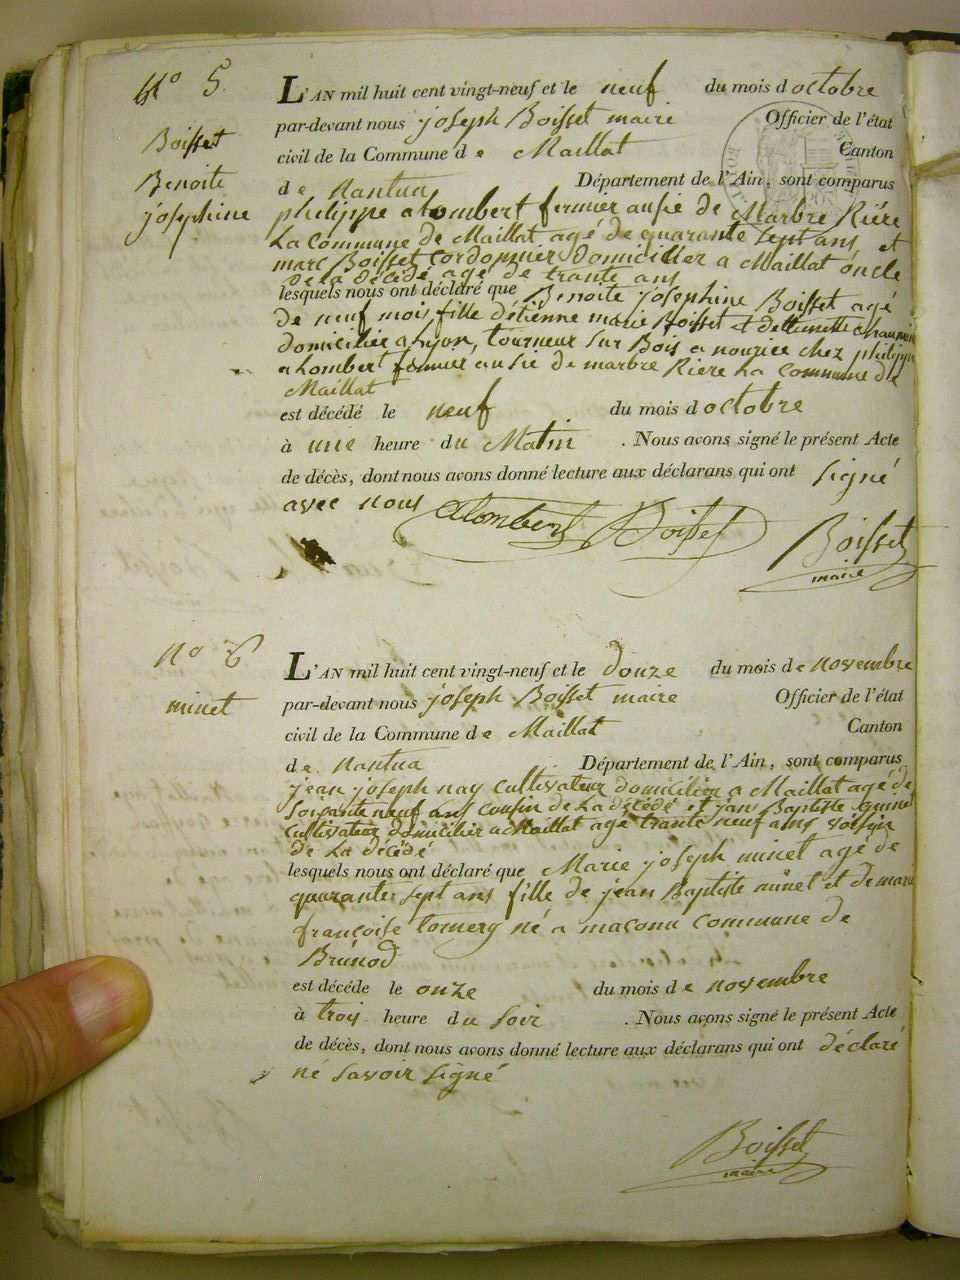 N° 5.
Boisset
Benoite
josephine
L'AN mil huit cent vingt-neuf et le neuf du mois d octobre
par-devant nous joseph Boisset maire Officier de l'état
civil de la Commune de Maillat Canton
de Nantua Département de l'Ain, sont comparus
philippe alombert fermier au sie de Marbre Riére
La Commune de Maillat agé de quarante sept ans et
marc Boisset Cordonnier domicillier a Maillat oncle
de la décédé agé de trante ans
lesquels nous ont déclaré que Benoite josephine Boisset agé
de neuf mois fille détienne marie Boisset et
domiciliée a Lyon, tourneur sur Bois a nourice chez philippe
alombert fermier au sie de marbre Riere La Commune de
Maillat
est décédé le neuf du mois d octobre
à une heure du Matin . Nous avons signé le présent Acte
de décès, dont nous avons donné lecture aux déclarans qui ont signé
avec nous alombert Boisset
Boisset
maire
no 6
minet
L'AN mil huit cent vingt-neuf et le douze du mois de novembre
par-devant nous joseph Boisset maire Officier de l'état
civil de la Commune de Maillat Canton
de Nantua Département de l'Ain, sont comparus
jean joseph nay Cultivateur domicilier a Maillat agé de
soisante neuf ans cousin de La décédé et jan Baptiste
Cultivateur domicilier a Maillat agé trante neuf ans voisin
de La décédé
lesquels nous ont déclaré que Marie joseph minet agé de
quarante sept ans fille de jean Baptiste minet et de marie
françoise tomery né a maconu commune de
Brénod
est décéde le onze du mois de novembre
à troy heure du soir . Nous avons signé le présent Acte
de décès, dont nous avons donné lecture aux déclarans qui ont déclaré
né savoir signé
Boisset
maire